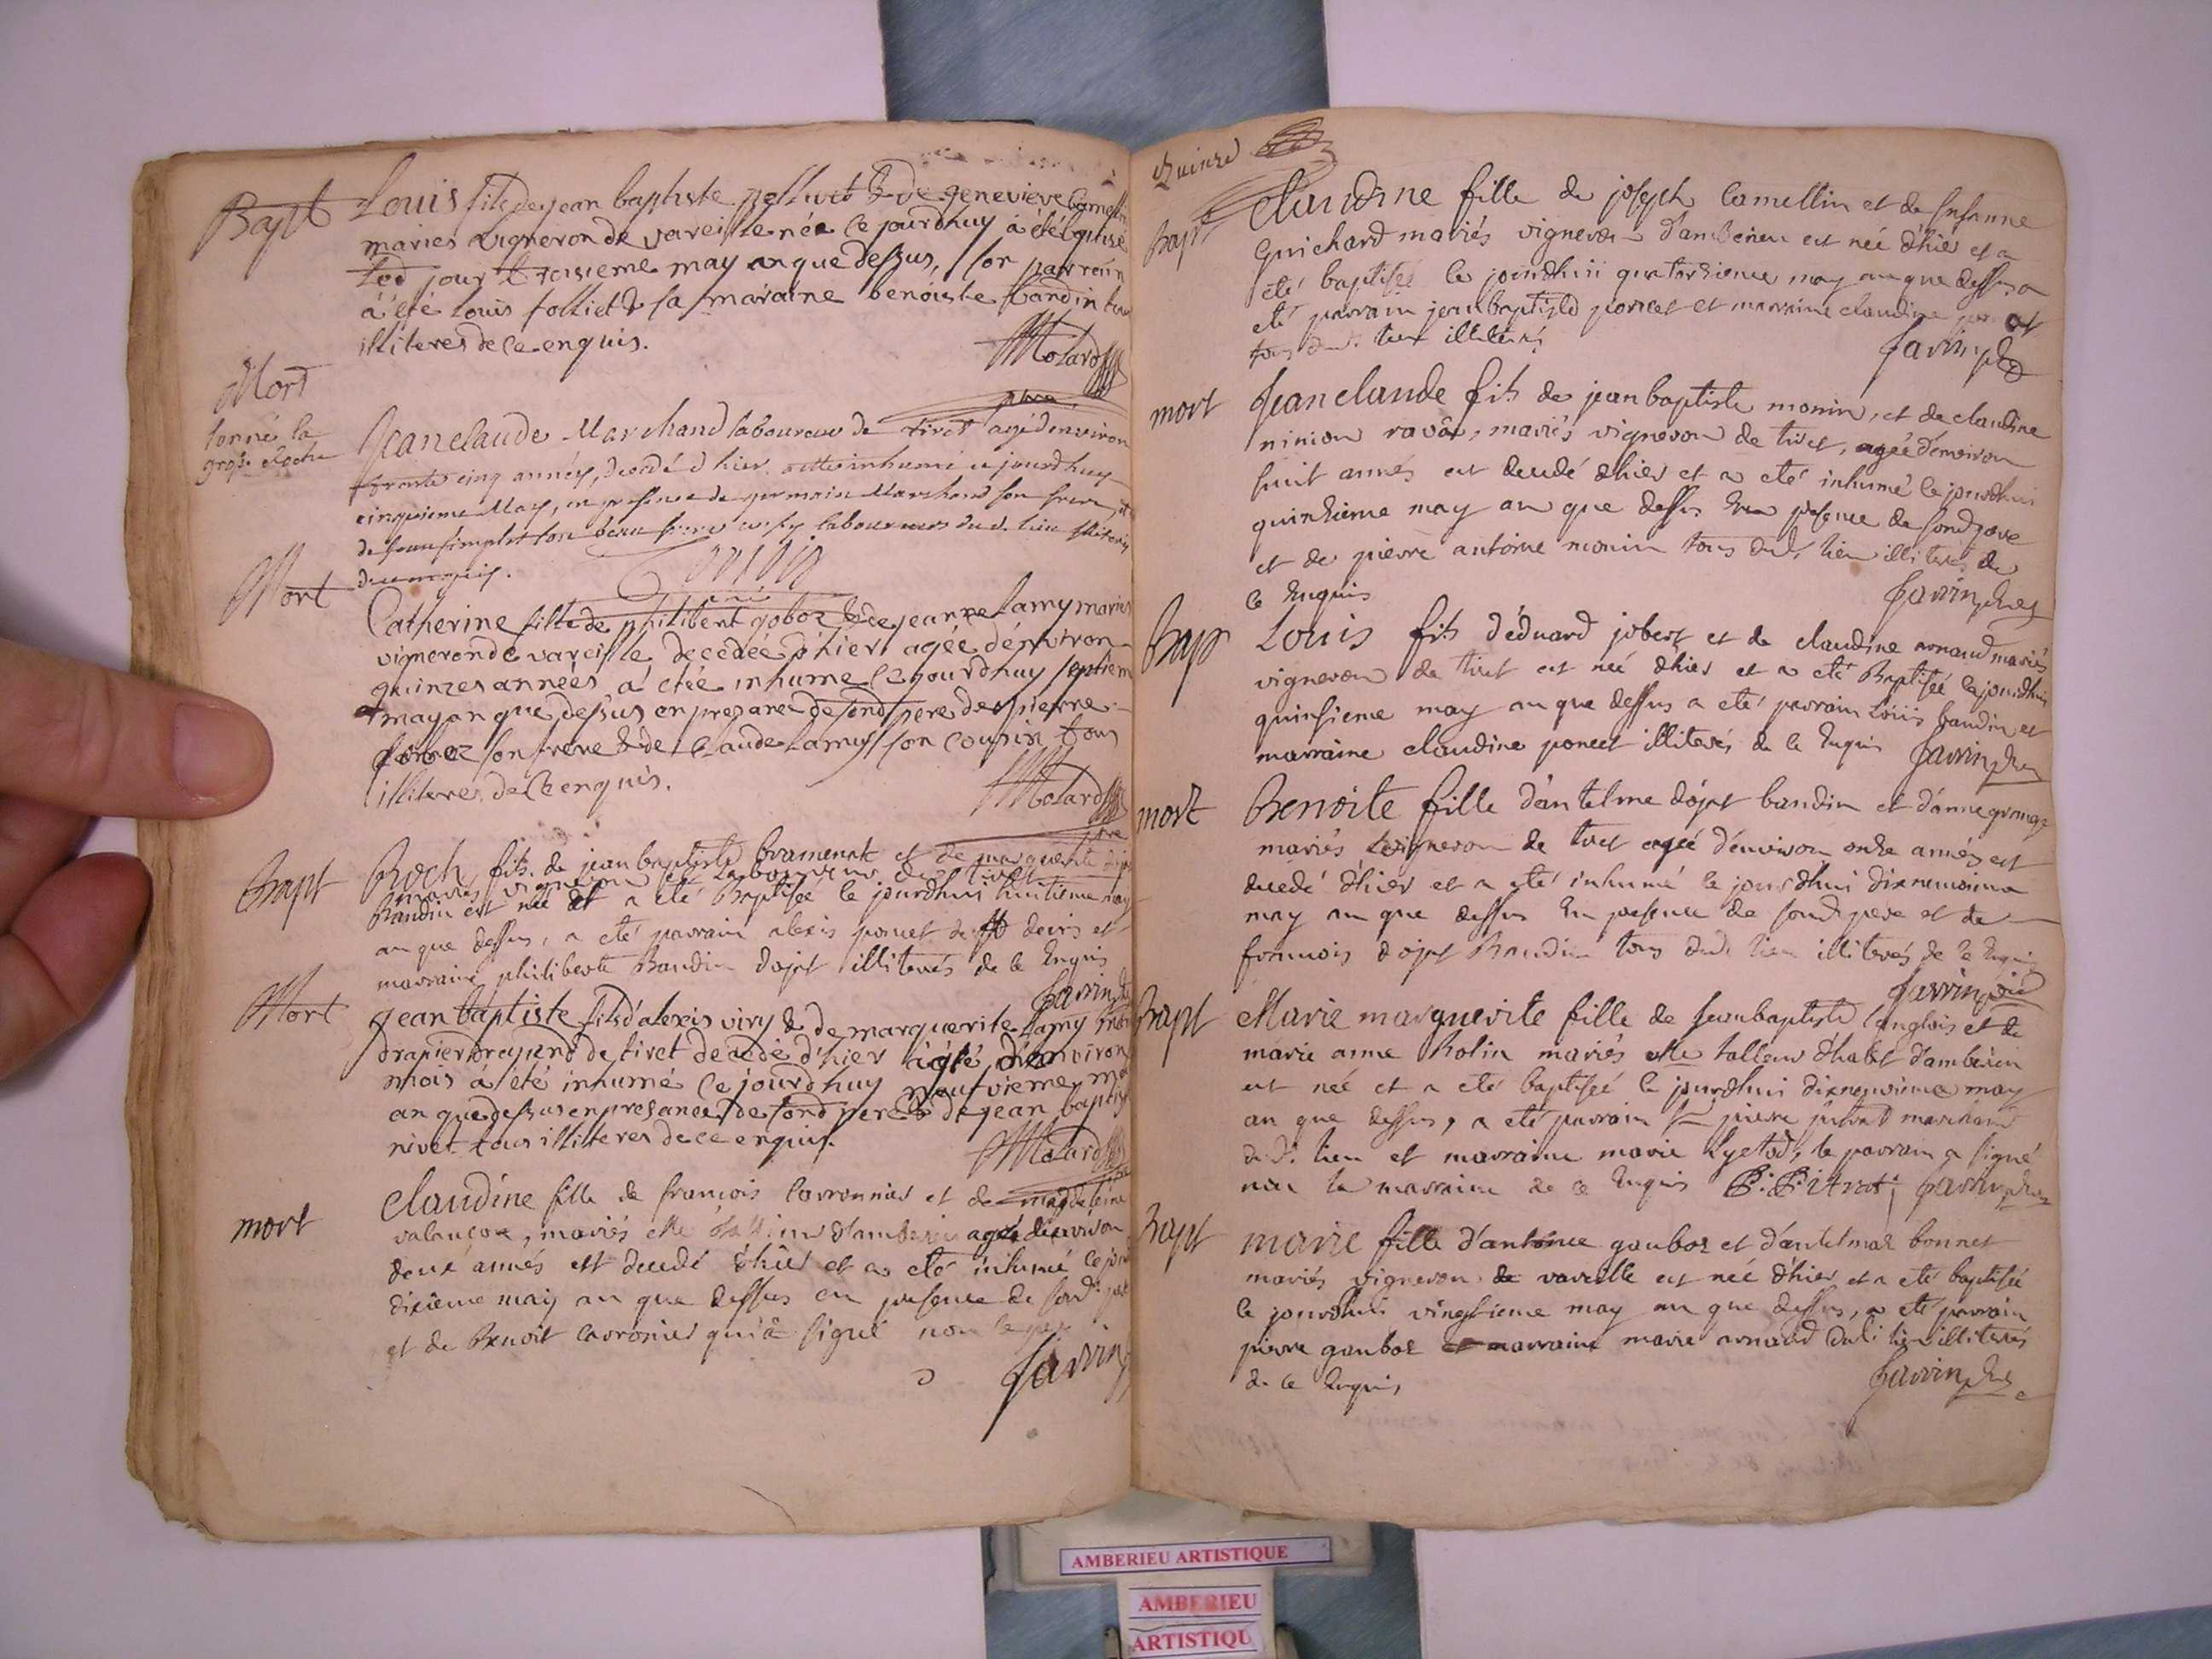 Bapt
Louis fils de jean baptiste pollivet & de genevieve
maries vigneron de vareille née ce jourdhuy à été baptisé
led jour troisieme may an que dessus, son parrein
à été Louis folliet & sa maraine benoiste bandin tous
illiteres de ce enquis.
Molard
Mort
sonné la
grosse cloche
Jean claude Marchand laboureur de tiret agé denviron
trente cinq années, decedé d'hier, a été inhumé ce jourdhuy
cinquieme May, en presence de germain Marchand son frere, et
de jean simplet son beau frere laboureurs dud. lieu illiteres
de ce enquis.
Mort
Catherine fille de philibert goboz & de jeanne Lamy maries
vigneron de vareille decedée d'hier agée dénviron
quinzes années a étée inhume ce jourdhuy septiem
may an que dessus en presance de sond pere de pierre
goboz son frere & de Claude Lamy son cousin tous
illiteres de ce enquis.
Molard
pre
Bapt
Roch fils de jean baptiste bramerat et de marguerite dojat
mariés vigneron et laboureur de tiret
Baudin est née et a eté Baptisée le jourdhui huitieme may
an que dessus, a eté parrain alexis poncet et
marraine philiberte Baudin dojat illiterés de ce enquis
Jarrin
Mort
Jean baptiste fils d'alexis viry & de marguerite Lamy
drapier drapend de tiret decedé d'hier agé d'environ
mois à été inhumé ce jourdhuy neufvieme may
an que dessus en presance de sond pere & de jean baptiste
nivet tous illiteres de ce enquis.
Molard
mort
Claudine fille de françois carronnier et de magdelaine
valançon, mariés d'amberieu agée d'environ
deux annés est decedé d'hier et a eté inhumé ce jour
dixieme may an que dessus en presence de sond. pere
et de Benoit carronier qui a signé non le pere
Jarrin
Quinze
Bapt
Claudine fille de joseph camellin et de susanne
Guichard mariés vigneron d'amberieu est née d'hier et a
eté baptisée le jourdhui quatorzieme may an que dessus a
eté parrain jean baptiste poncet et marraine claudine
tous dud. lieu illiterés
Jarrin pre
mort
Jean claude fils de jean baptiste monin, et de claudine
ninion ravôt, mariés vigneron de tiret, agée d'environ
huit annés est decedé d'hier et a eté inhumé le jourdhui
quinzieme may an que dessus en presence de sond pere
et de pierre antoine monin tous dud. lieu illiterés de
ce enquis
Jarrin pre
Bapt
Louis fils d'éduard jobert et de claudine arnaud mariés
vigneron de tiret est née d'hier et a eté Baptisée le jourdhui
quinsieme may an que dessus a eté parrain Louis baudin et
marraine claudine poncet illiterés de ce enquis Jarrin
mort
Benoite fille d'antelme dojat baudin et d'anne grange
mariés vigneron de tiret agée d'environ onze annés est
decedé d'hier et a eté inhumé le jourdhui dixneuvieme
may an que dessus en presence de sond. pere et de
francois dojat Baudin tous dud. lieu illiterés de ce enquis
Jarrin
Bapt
Marie marguerite fille de Jean baptiste Langlois et de
marie anne Rolin mariés mtre talleur d'habit d'amberieu
est née et a eté baptisée le jourdhui dixneuvieme may
an que dessus, a eté parrain pierre marchand
du d. lieu et marraine marie le parrain a signé
non la marraine de ce enquis Jarrin
Bapt
Marie fille d'antoine gauboz et d'antelmaz bonnet
mariés vigneron de vareille est née d'hier et a eté baptisée
le jourdhui vingtieme may an que dessus, a eté parrain
pierre gauboz et marraine marie arnaud dud. lieu illiterés
de ce enquis
Jarrin
AMBERIEU ARTISTIQUE
AMBERIEU
ARTISTIQU